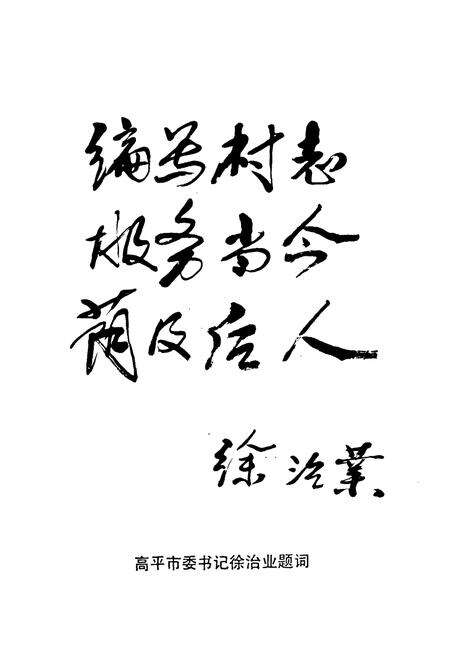 编写村志
服务当今
荫及后人
徐治業
高平市委书记徐治业题词